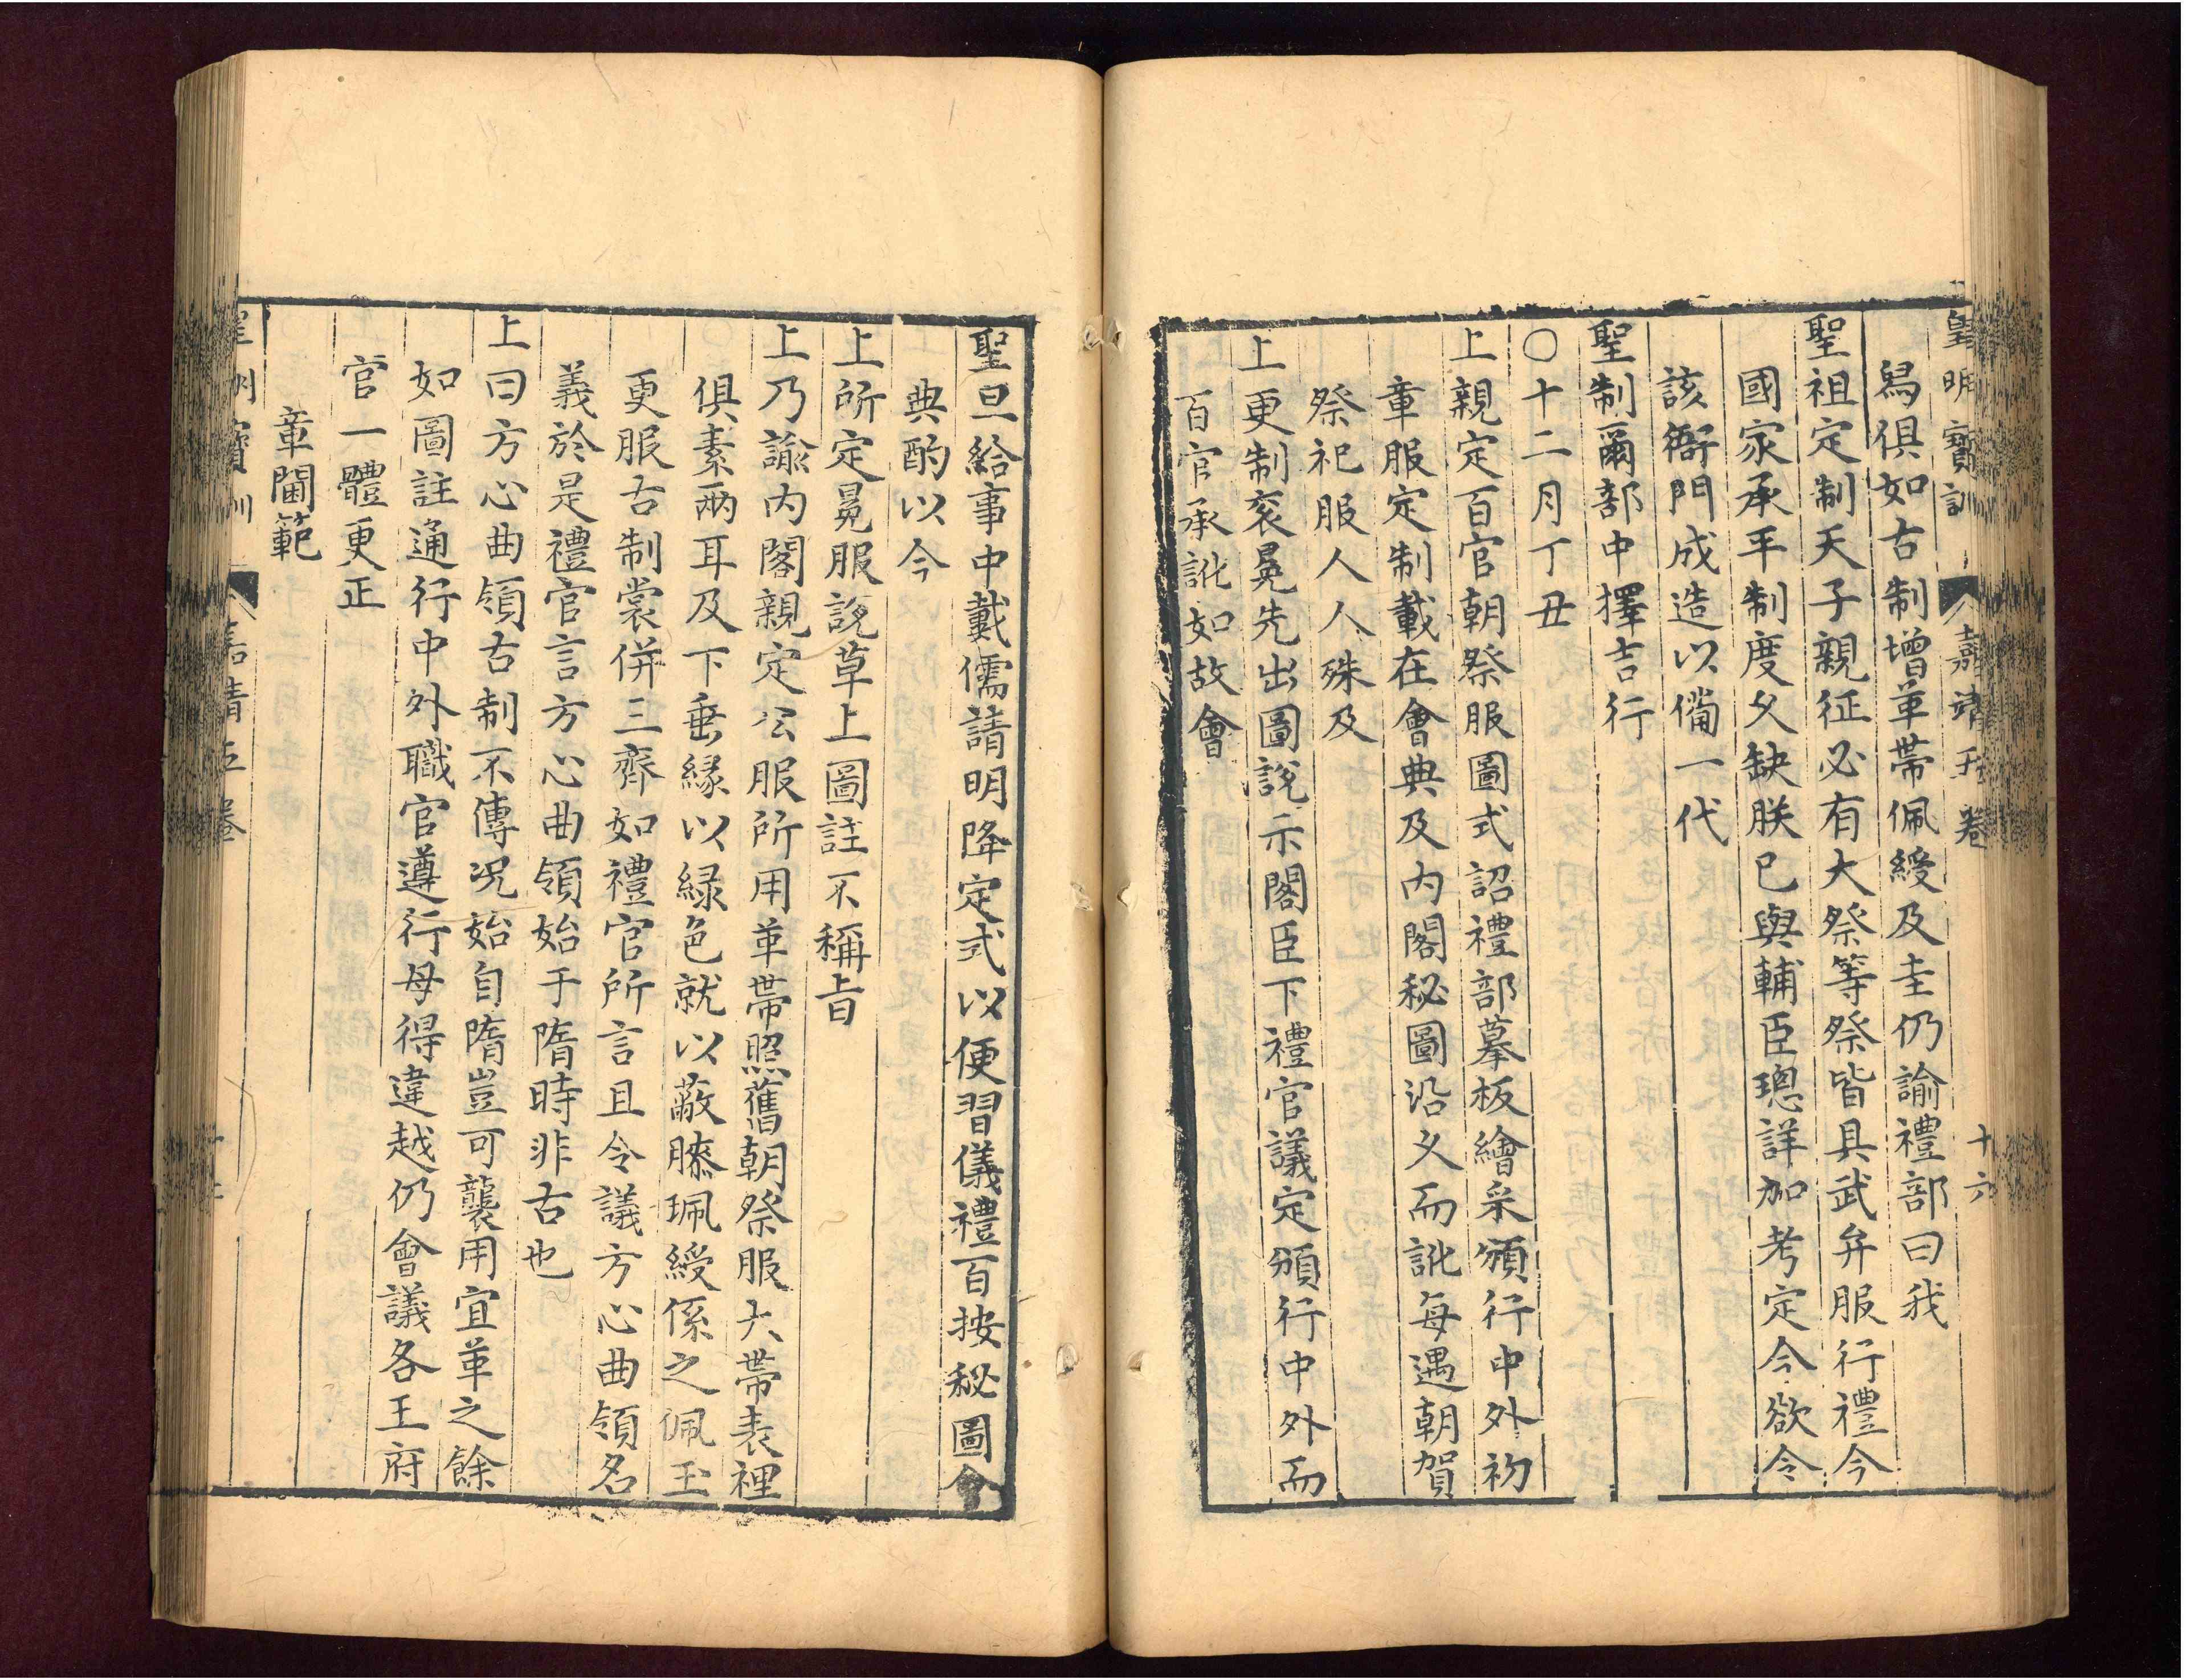 皇明寶訓 嘉靖五卷 十六
舄俱如古制增革帶佩綬及圭仍諭禮部曰我
聖祖定制天子親征必有大祭等祭皆具武弁服行禮今
國家承平制度久缺朕已與輔臣璁詳加考定今欲令
該衙門成造以備一代
聖制爾部中擇吉行
〇十二月丁丑
上親定百官朝祭服圖式詔禮部摹板繪采頒行中外初
章服定制載在會典及內閣秘圖沿久而訛每遇朝賀
祭祀服人人殊及
上更制衮冕先出圖說示閣臣下禮官議定頒行中外而
百官承訛如故會
聖旦給事中戴儒請明降定式以便習儀禮百按秘圖會
典酌以今
上所定冕服說草上圖註不稱旨
上乃諭內閣親定公服所用革帶照舊朝祭服大帶表裡
俱素兩耳及下垂緣以綠色就以蔽膝珮綬係之佩玉
更服古制裳併三齊如禮官所言且令議方心曲領名
義於是禮官言方心曲領始于隋時非古也
上曰方心曲領古制不傳況始自隋豈可襲用宜革之餘
如圖註通行中外職官遵行毋得違越仍會議各王府
官一體更正
章閫範
寶訓 嘉靖五卷